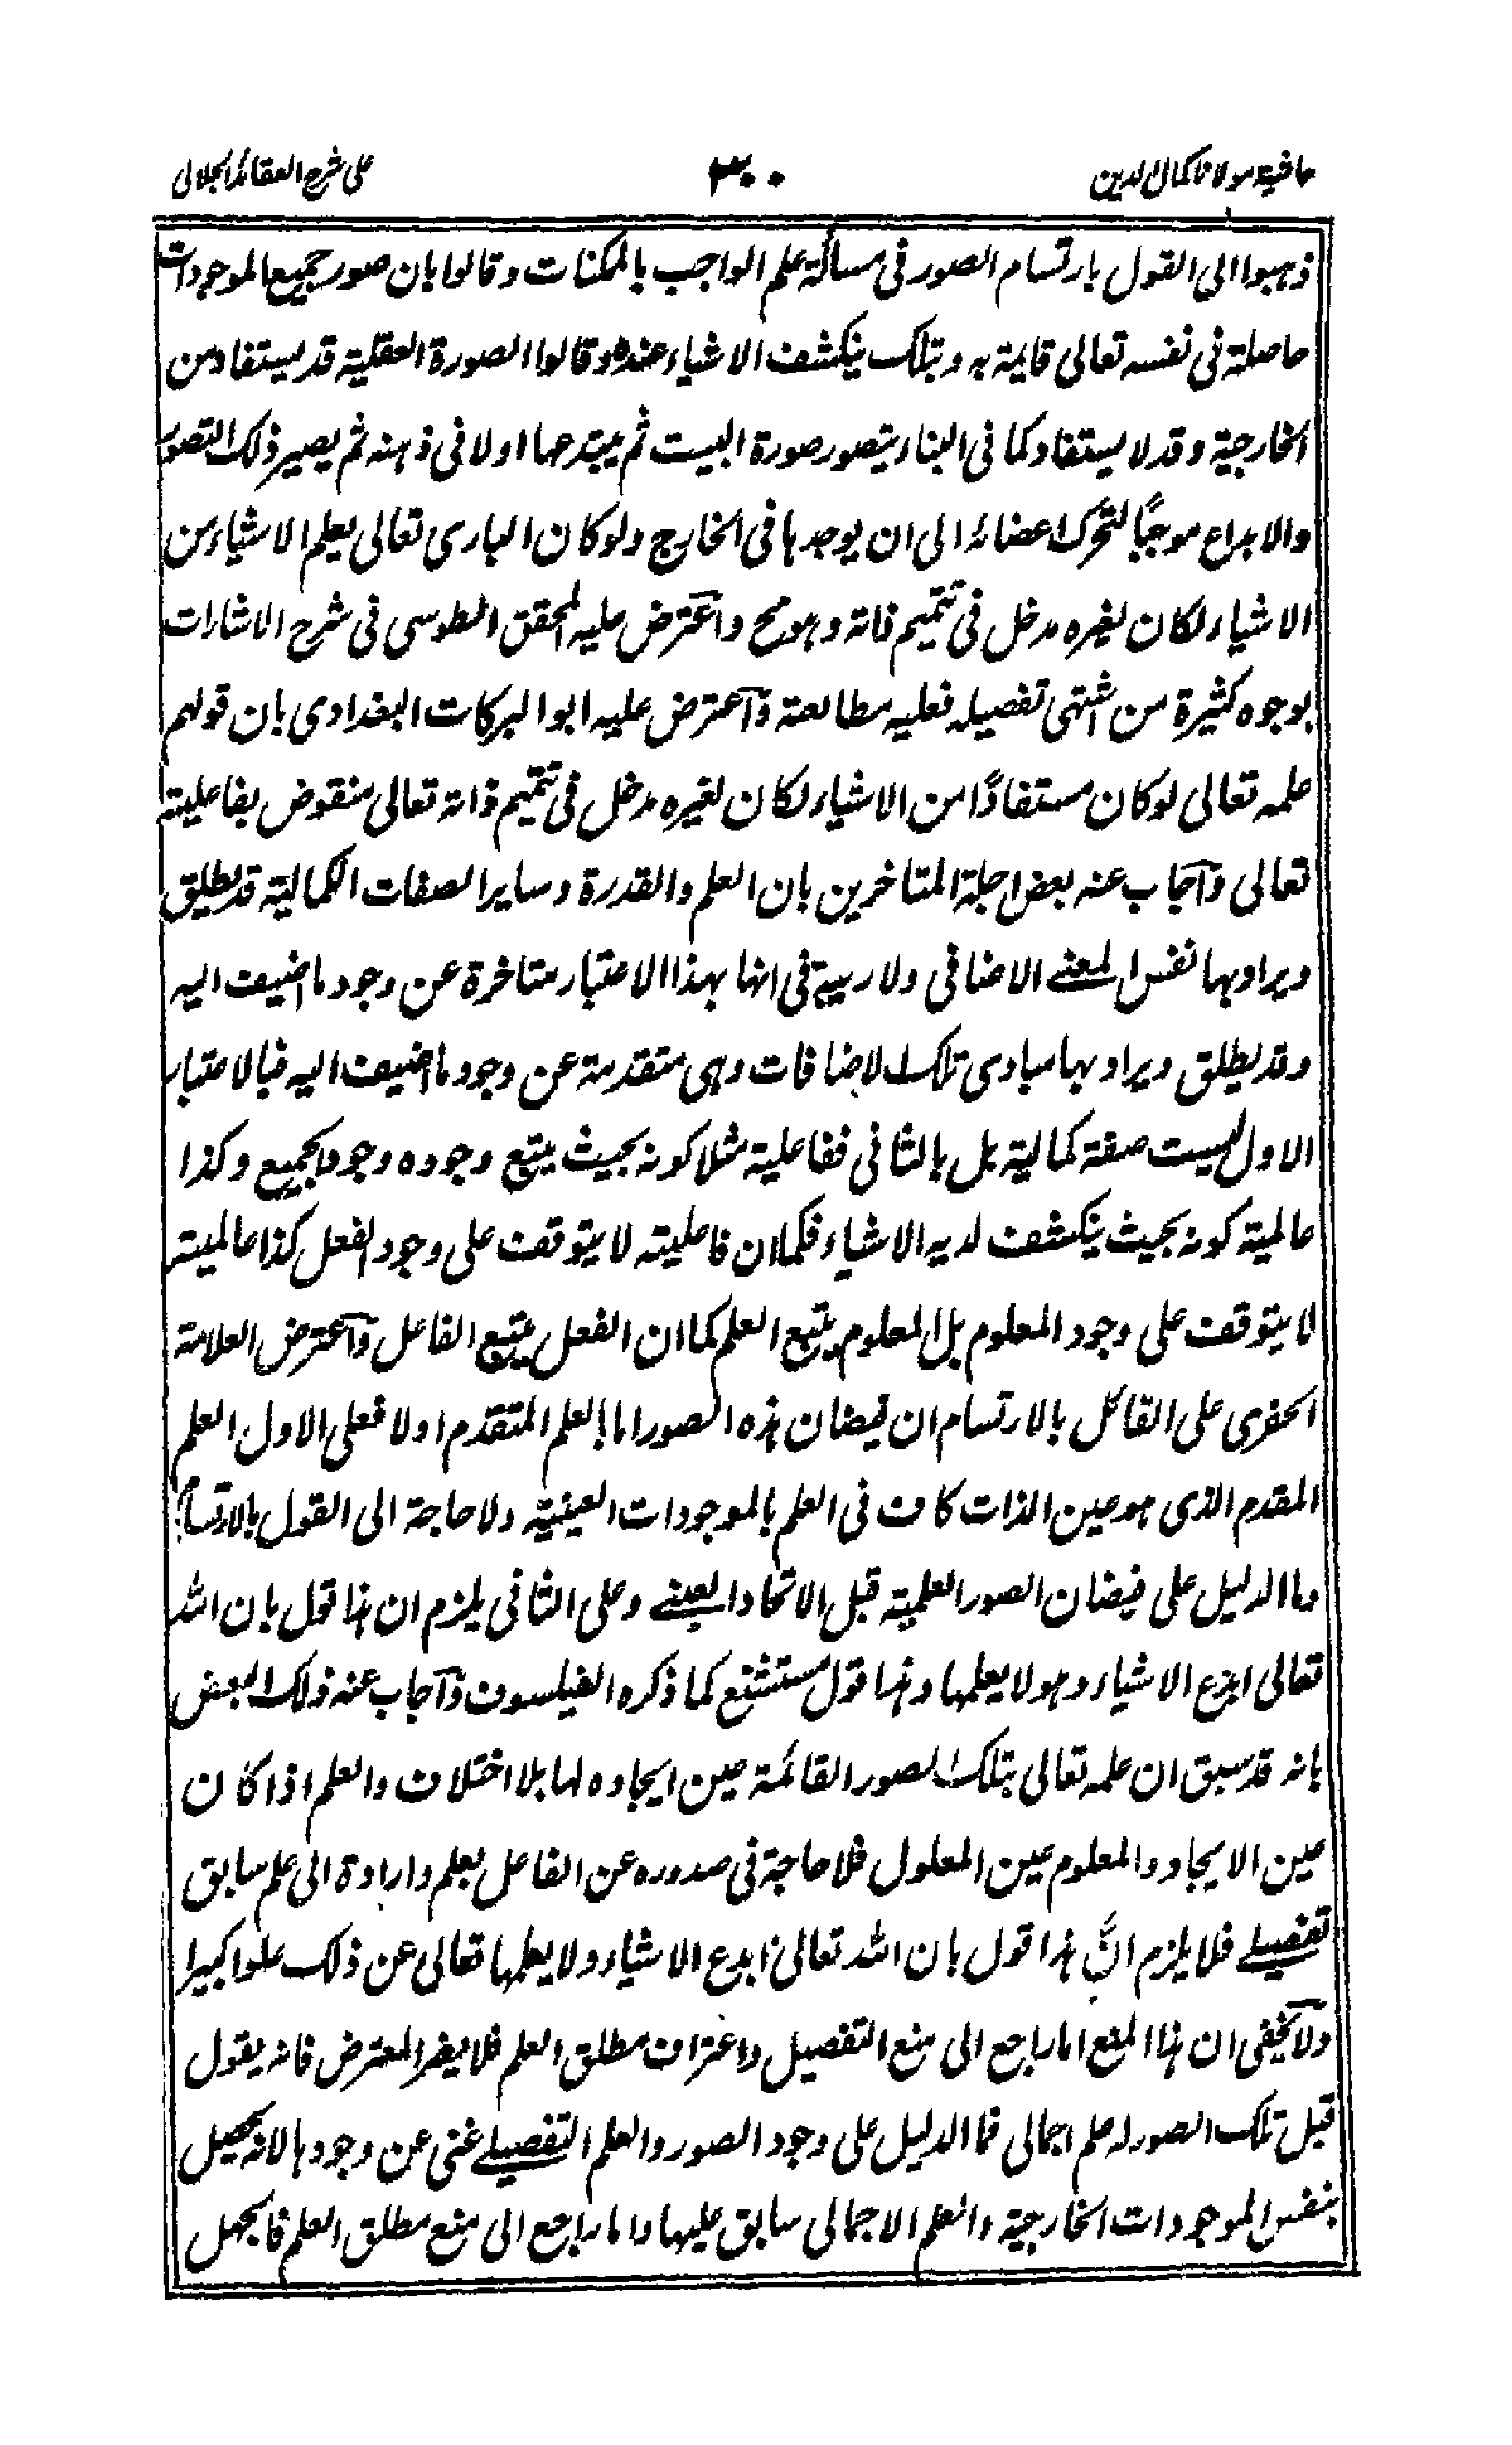 حاشیة مولانا کمال الدین
۳۰۰
علی شرح العقائد الجلالی
ذہبوا الی القول بارتسام الصور فی مسألة علم الواجب بالممکنات وقالوا بان صور جمیع الموجودات
حاصلة فی نفسہ تعالی قایمة بہ وبتلک ینکشف الاشیاء عندہ وقالوا الصورة العقلیة قد یستفاد من
الخارجیة وقد لا یستفاد کما فی البناء یتصور صورة البیت ثم یبتدعہا اولا فی ذہنہ ثم یصیر ذلک التصور
والابداع موجبًا لتحرک اعضائہ الی ان یوجدہا فی الخارج ولو کان الباری تعالی یعلم الاشیاء من
الاشیاء لکان لغیرہ مدخل فی تتمیم ذاتہ وہو مح واعترض علیہ المحقق الطوسی فی شرح الاشارات
بوجوہ کثیرة من اشتہی تفصیلہ فعلیہ مطالعتہ واعترض علیہ ابو البرکات البغدادی بان قولہم
علمہ تعالی لو کان مستفادًا من الاشیاء لکان لغیرہ مدخل فی تتمیم ذاتہ تعالی منقوض بفاعلیتہ
تعالی واجاب عنہ بعض اجلة المتاخرین بان العلم والقدرة وسایر الصفات الکمالیة قد یطلق
ویراد بہا نفس المعنے الاضافی ولا ریبة فی انہا بہذا الاعتبار متاخرة عن وجود ما اضیف الیہ
وقد یطلق ویراد بہا مبادی تلک الاضافات وہی متقدمة عن وجود ما اضیف الیہ فبالاعتبار
الاول لیست صفة کمالیة بل بالثانی ففاعلیة مثلا کونہ بحیث یتبع وجودہ وجود الجمیع وکذا
عالمیة کونہ بحیث ینکشف لدیہ الاشیاء فکما ان فاعلیتہ لا یتوقف علی وجود الفعل کذا عالمیتہ
لا یتوقف علی وجود المعلوم بل المعلوم یتبع العلم کما ان الفعل یتبع الفاعل واعترض العلامة
الخفری علی القائل بالارتسام ان فیضان ہذہ الصور اما بالعلم المتقدم اولا فعلی الاول العلم
المقدم الذی ہو عین الذات کاف فی العلم بالموجودات العینیة ولا حاجة الی القول بالارتسام
وما الدلیل علی فیضان الصور العلمیة قبل الاتحاد العینے وعلی الثانی یلزم ان ہذا قول بان اللہ
تعالی ابدع الاشیاء وہو لا یعلمہا وہذا قول مستشنع کما ذکرہ الفیلسوف واجاب عنہ ذلک البعض
بانہ قد سبق ان علمہ تعالی بتلک الصور القائمة عین ایجادہ لہا بلا اختلاف والعلم اذا کان
عین الایجاد والمعلوم عین المعلول فلا حاجة فی صدورہ عن الفاعل بعلم وارادة الی علم سابق
تفصیلے فلا یلزم انَّ ہذا قول بان اللہ تعالی ابدع الاشیاء ولا یعلمہا تعالی عن ذلک علوا کبیرا
ولا یخفی ان ہذا المنع اما راجع الی منع التفصیل واعتراف مطلق العلم فلا یضر المعترض فانہ یقول
قبل تلک الصور لہ علم اجمالی فما الدلیل علی وجود الصور والعلم التفصیلے غنی عن وجودہا لانہ یحصل
بنفس الموجودات الخارجیة والعلم الاجمالی سابق علیہا واما راجع الی منع مطلق العلم فالجہل